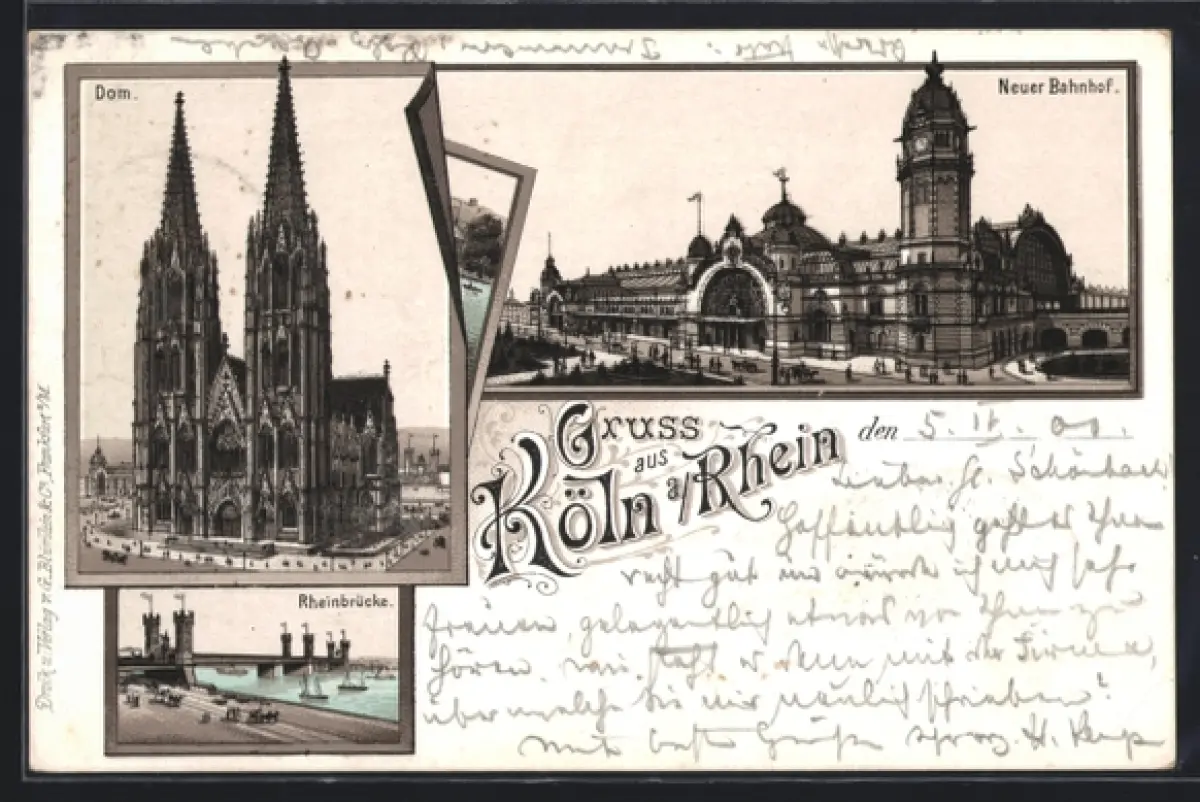 Dom.
Neuer Bahnhof.
Gruss
aus
Köln a/Rhein
den 5. IV. 01.
Lieber H. Schönbach
Hoffentlich geht es Ihnen
recht gut und würde ich mich sehr
freuen, gelegentlich etwas von Ihnen zu
hören, wie steht es denn mit der Firma,
über welche Sie mir neulich schrieben?
Mit besten Grüßen H.
Rheinbrücke.
Druck u. Verlag v. G. Blümlein & Co., Frankfurt a/M.